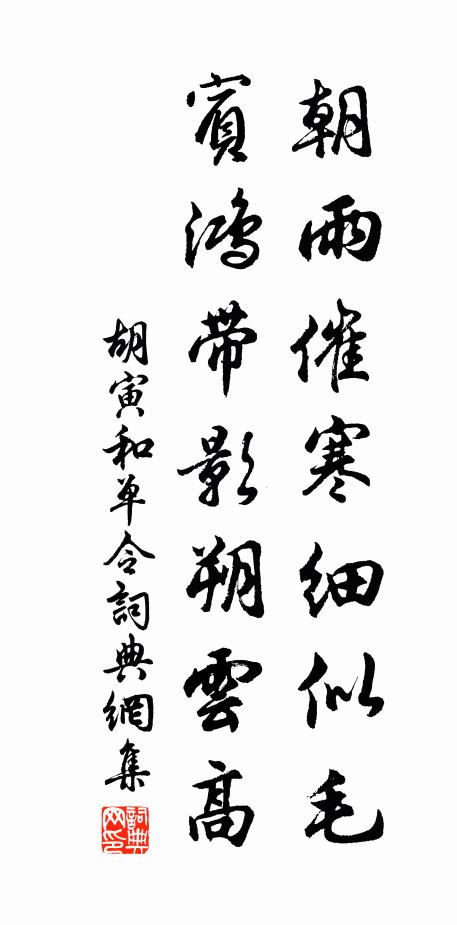 朝雨催寒細似毛
賓鴻帶影朔雲高
胡寅和單令詞典網集
詞典网印